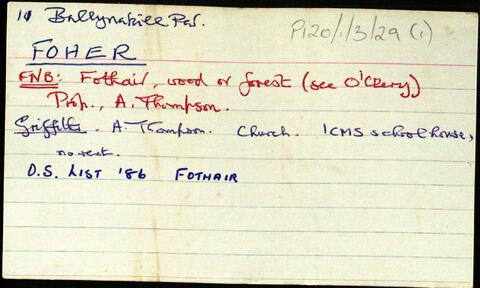 11 Ballynakill Par.
P120/1/3/29 (1)
FOHER
FNB: Fothair, wood or forest (see O'Clery)
Prop., A. Thompson.
Griffith. A. Thompson. Church. ICMS schoolhouse,
no rent.
O.S. LIST '86 FOTHAIR